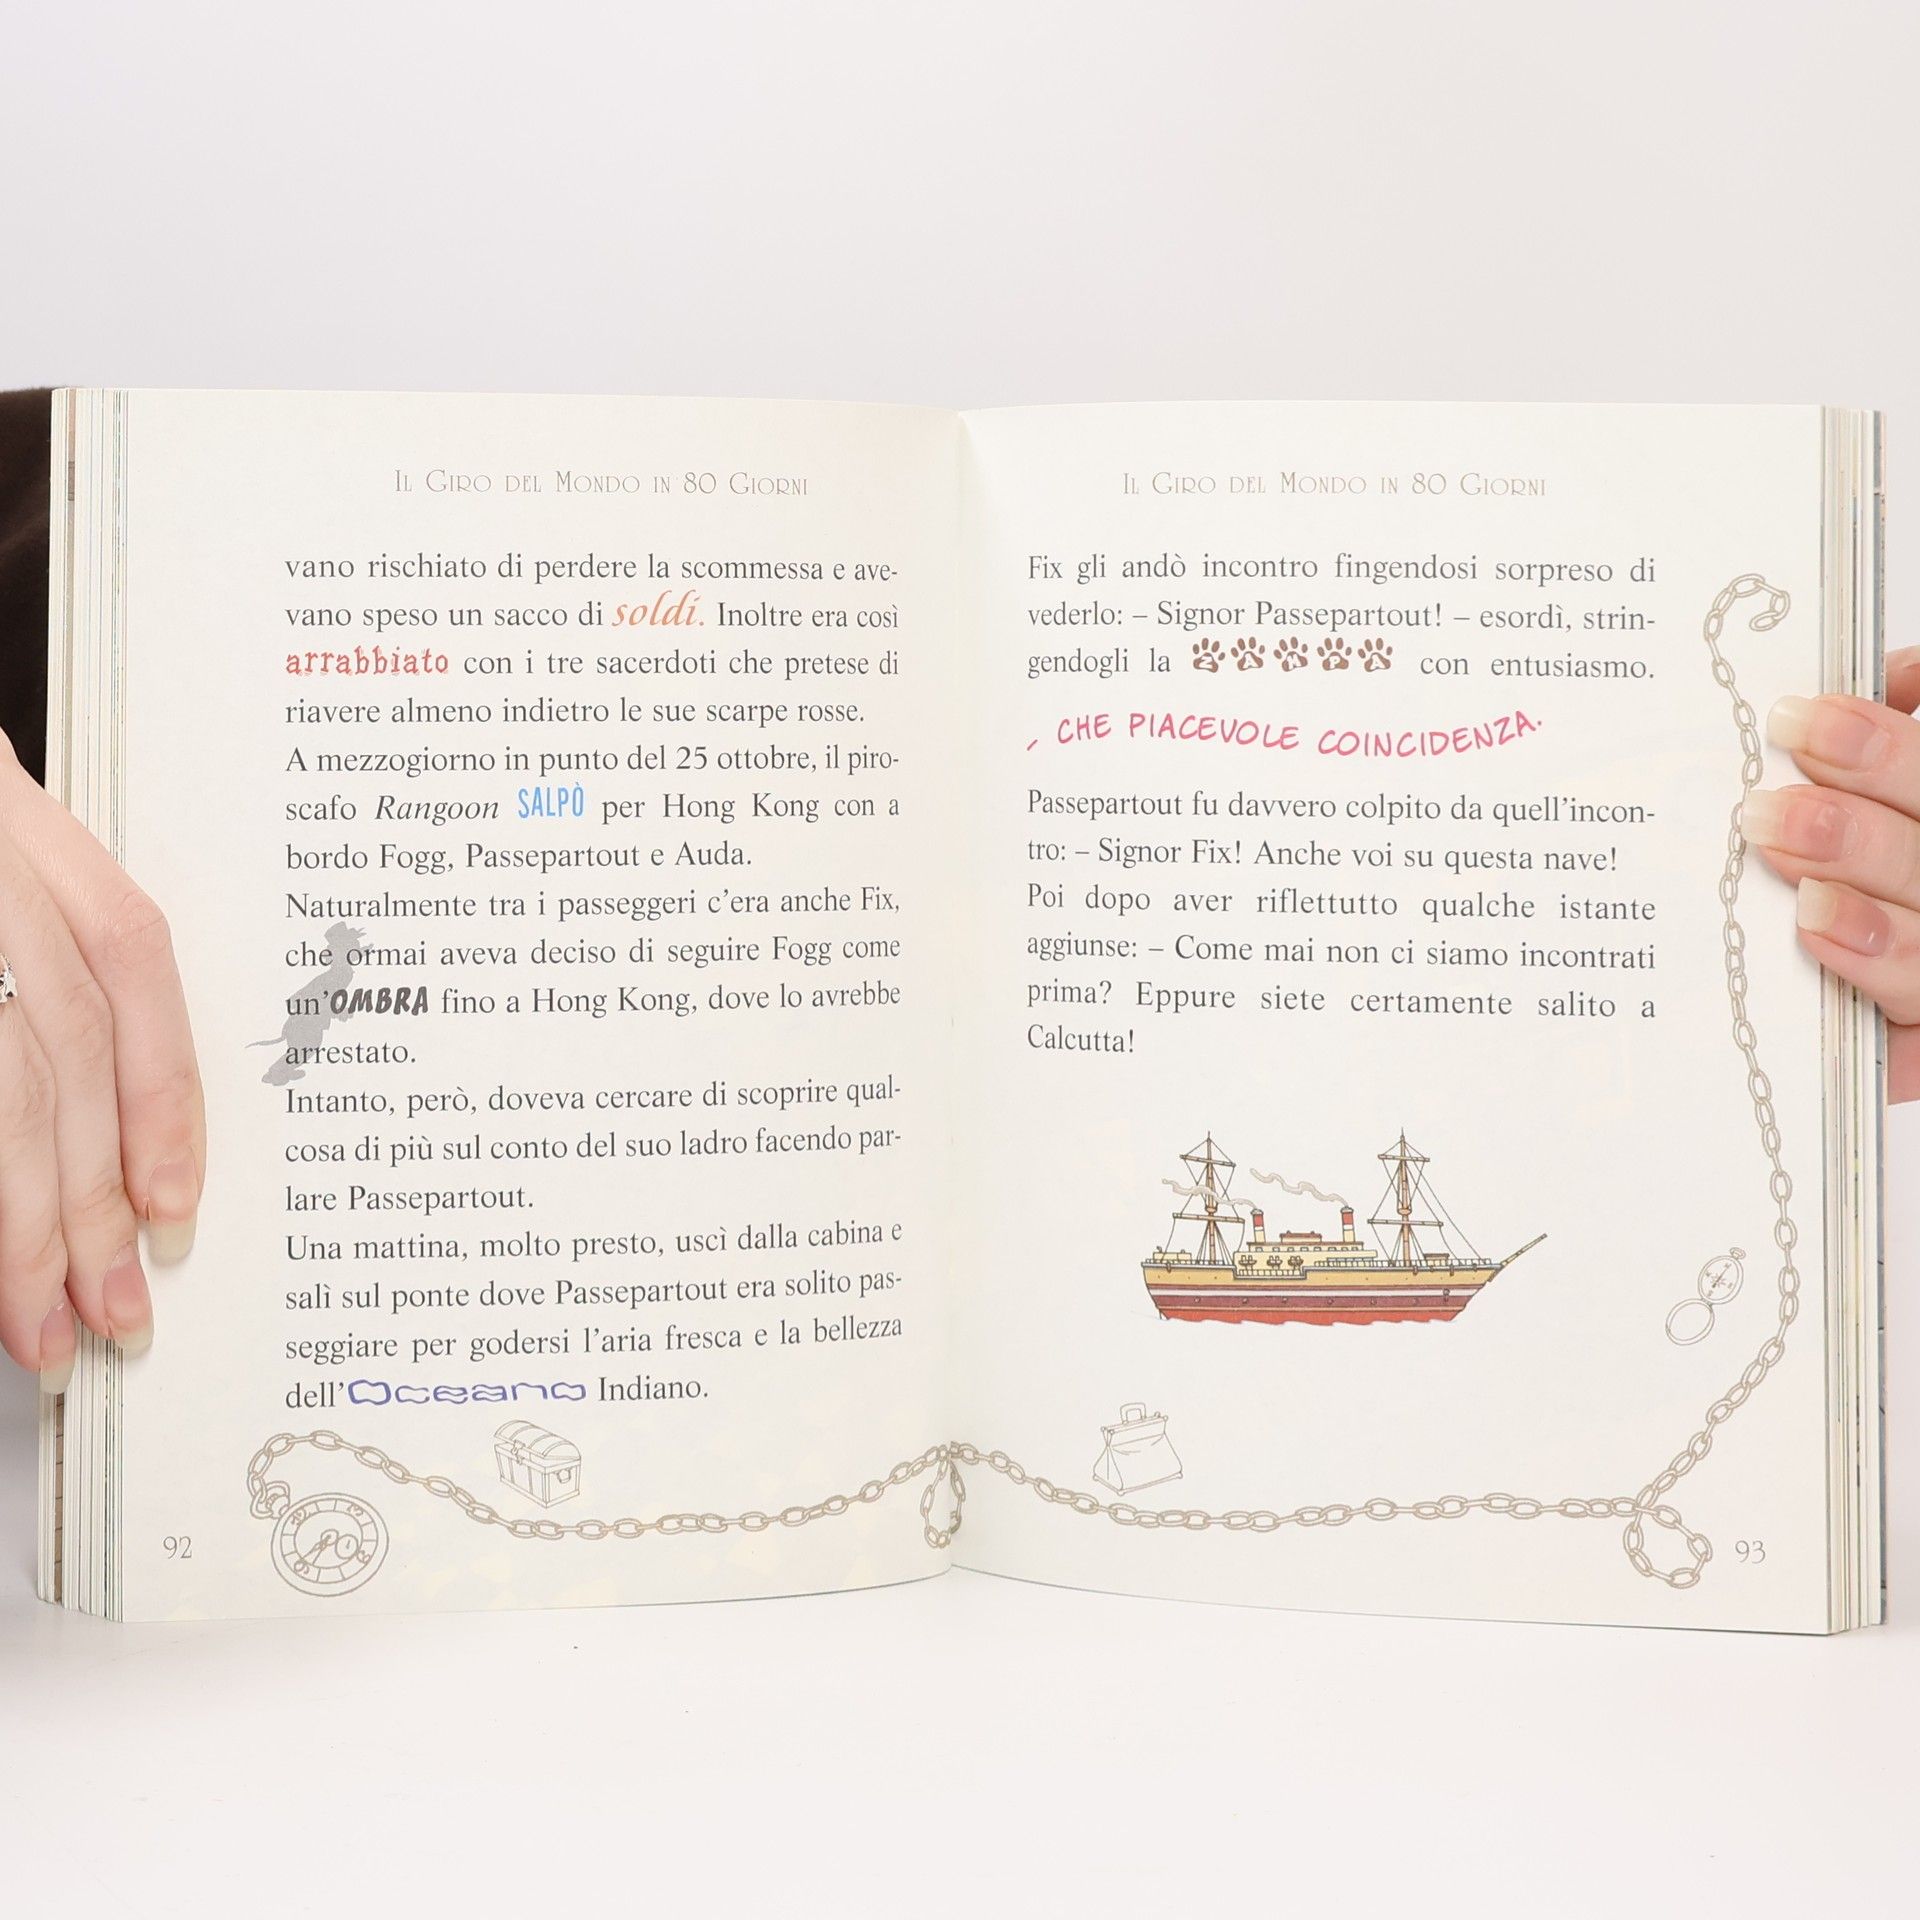 Il Giro del Mondo in 80 Giorni
vano rischiato di perdere la scommessa e ave-
vano speso un sacco di soldi. Inoltre era così
arrabbiato con i tre sacerdoti che pretese di
riavere almeno indietro le sue scarpe rosse.
A mezzogiorno in punto del 25 ottobre, il piro-
scafo Rangoon SALPÒ per Hong Kong con a
bordo Fogg, Passepartout e Auda.
Naturalmente tra i passeggeri c'era anche Fix,
che ormai aveva deciso di seguire Fogg come
un'OMBRA fino a Hong Kong, dove lo avrebbe
arrestato.
Intanto, però, doveva cercare di scoprire qual-
cosa di più sul conto del suo ladro facendo par-
lare Passepartout.
Una mattina, molto presto, uscì dalla cabina e
salì sul ponte dove Passepartout era solito pas-
seggiare per godersi l'aria fresca e la bellezza
dell'Oceano Indiano.
92
Il Giro del Mondo in 80 Giorni
Fix gli andò incontro fingendosi sorpreso di
vederlo: – Signor Passepartout! – esordì, strin-
gendogli la ZAMPA con entusiasmo.
– CHE PIACEVOLE COINCIDENZA.
Passepartout fu davvero colpito da quell'incon-
tro: – Signor Fix! Anche voi su questa nave!
Poi dopo aver riflettutto qualche istante
aggiunse: – Come mai non ci siamo incontrati
prima? Eppure siete certamente salito a
Calcutta!
93